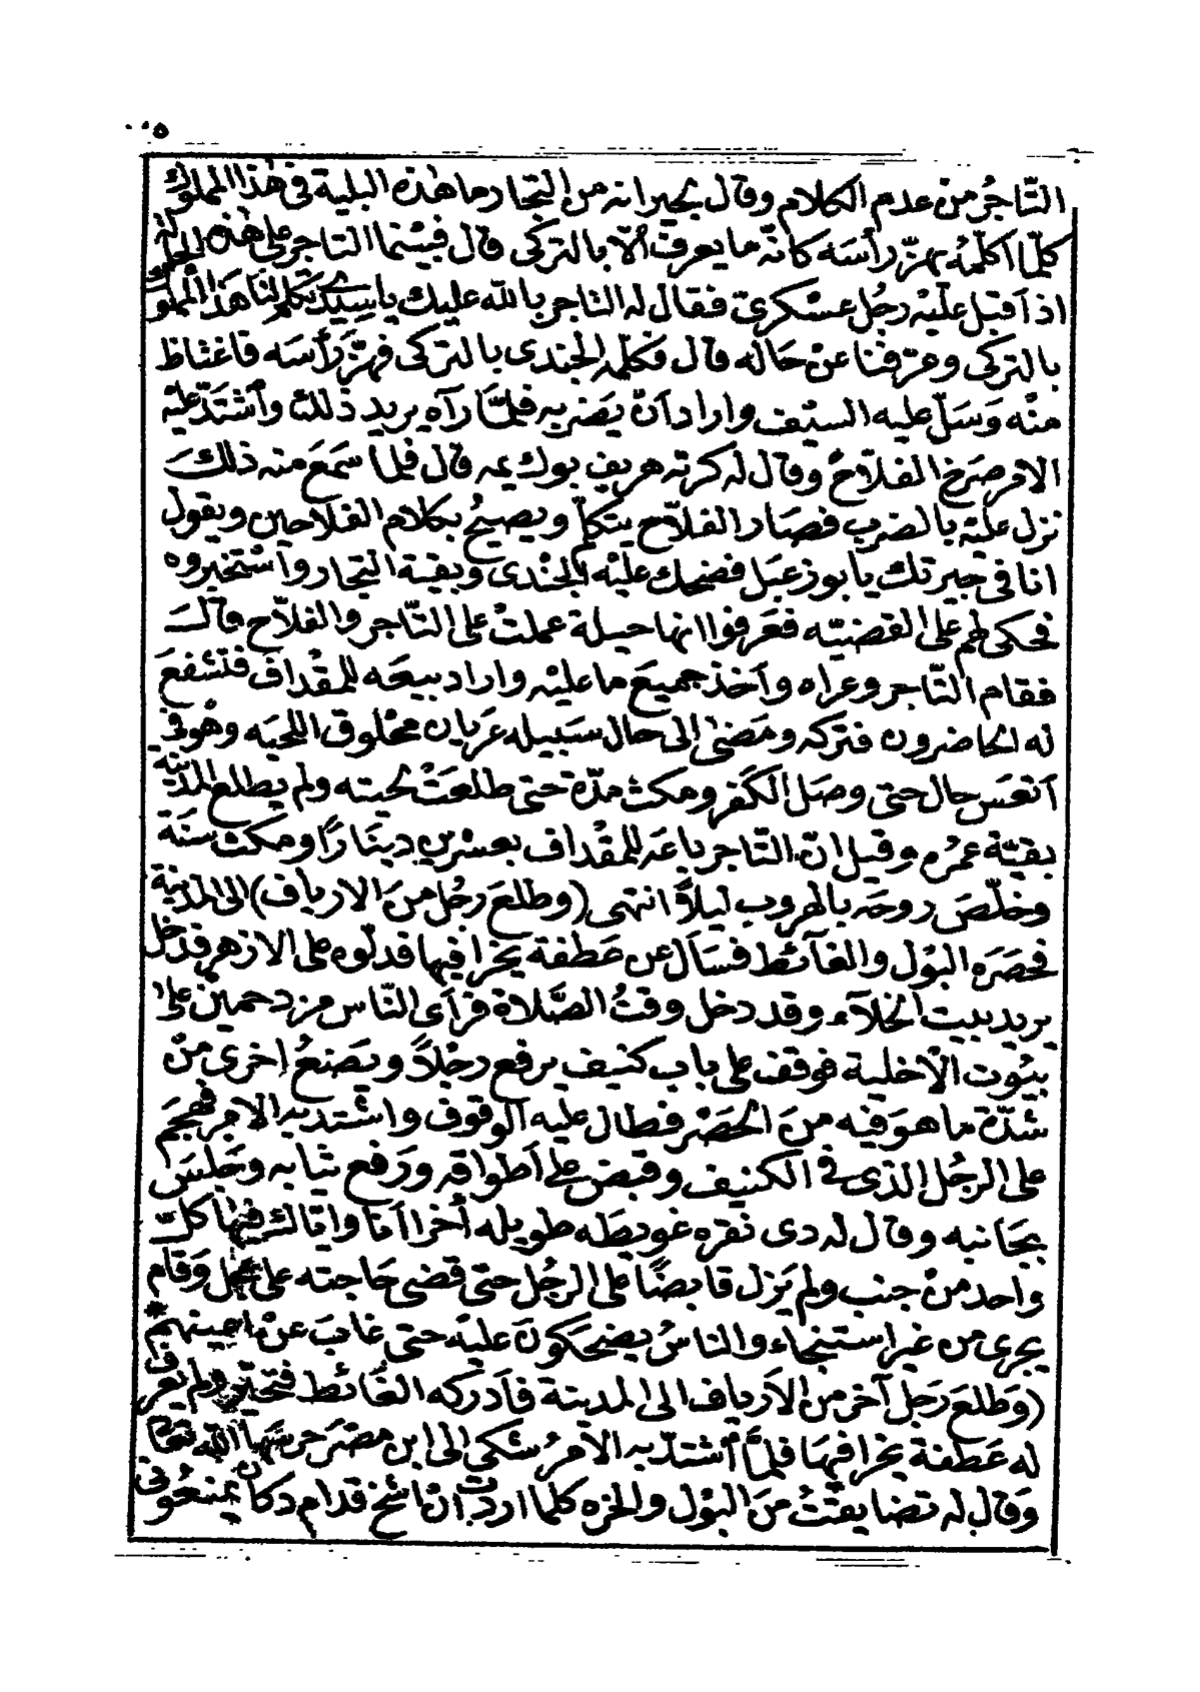 ٥
التّاجُر من عدم الكلام وقال لجيرانه من التجار ما هذه البلية في هذا المملوك
كلّما اكلّمه يهزّ رأسَه كانّه ما يعرف الّا بالتركى قال فبينما التاجر على هذه الحالة
اذ اقبل عليْه رجُل عسْكرىّ فقال له التاجر بالله عليك يا سيدى تكلم لنا هذا المملوك
بالتركى وعرّفنا عنْ حاله قال فكلّمه الجندى بالتركى فهزّ رَأسَه فاغتاظ
منْه وَسَلّ عليه السيْف واراد انْ يضربه فلمّا رآه يريد ذلك واشتدّ عليْه
الامر صَرخ الفلّاحُ وقال له كرته هريف بوك يمه قال فلما سمَعَ منه ذلكَ
نزل عليْه بالضرب فصَار الفلّاح يتكلّم ويصيحُ بكلام الفلاحين ويقول
انا فى جيرتك يا بو زعبَل فضحك عليْه الجنْدى وبقية التجار واسْتخبروه
فحكى لهم على القضيّه فعَرفوا انها حيلة عملتْ على التّاجر والفلّاح قالَ
فقام التّاجر وعراه وأخذ جميعَ ما عليْه واراد بيعَه للمقْداف فتشفعَ
له الحاضرون فتركه ومَضى الى حال سَبيله عَريان محْلوق اللحيَه وهُو فى
اتعَس حال حتى وصَل الكَفر ومكث مدّة حتى طلعَتْ لحيته ولم يطلع المدينة
بقيّة عمُره وقيل انّ التّاجر باعَه للمقْداف بعشرين دينَارًا ومكث سَنَة
وخلّصَ روحَه بالهروب ليلًا انتهى (وطلعَ رجُل منَ الارياف) الى المدينة
فحصَرَه البوْل والغآئط فسَألَ عن عَطفة يخرا فيها فدلّوه على الازهر فدخل
يريد بيت الخلآء وقد دخل وقتُ الصّلاة فرَأى النّاس مزدحمينَ على
بيُوت الأخلية فوقف على باب كنيف يرفع رجْلاً ويَضعُ اخرى منْ
شدّة ما هوَ فيه منَ الحَصْر فطال عليه الوقوف واشتد به الامر فهجَم
على الرجُل الذى فى الكنيف وقبض على اَطواقه ورَفع ثيابه وجَلسَ
بجَانبه وقال له دى نقره غويطَه طويله أخرا اَنا وايّاك فيهَا كلّ
واحد منْ جنب ولم يَزل قابضًا على الرجُل حتى قضى حَاجته على عجل وَقام
يجرى من غير استنجاء والناسُ يضحَكونَ عليْه حتى غابَ عنْ اعينهمْ
(وَطلعَ رَجل آخر من الاَرياف الى المدينة فاَدركه الغَائط فتحيّر ولم يعرف
له عَطفة يخرا فيهَا فلمّا اشتدّ به الاَمرُ شكى الى ابن مصْر حرسَها الله تعَالى
وَقال له تضايقتُ منَ البوْل والخره كلما اردت انْ اشخ قدام دكان يمنعُونى